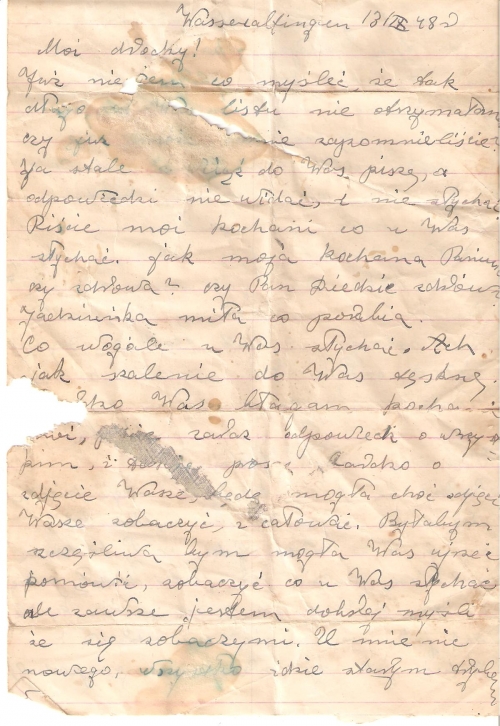 Wasseralfingen 13/IX 48 r
Moi drodzy!
Już nie wiem co myśleć, że tak
długo listu nie otrzymałam
czy już mnie zapomnieliście?
Ja stale do Was piszę, a
odpowiedzi nie widać, i nie słychać
Piście moi kochani co u Was
słychać. Jak moja kochana
czy zdrowa? czy Pan Dziedzic zdrów
Jadziuńka miła co porabia.
Co wogóle u Was słychać. Ach
jak szalenie do Was tęsknę
Was błagam kocha
moi, zaraz odpowiedź o wszys
kim, i proszę bardzo o
zdjęcie Wasze, będę mogła choć zdjęcie
Wasze zobaczyć, i całować. Byłabym
szczęśliwa bym mogła Was ujrzeć
pomówić, zobaczyć co u Was słychać
ale zawsze jestem dobrej myśli
że się zobaczymi. U mnie nic
nowego, wszystko idzie starym